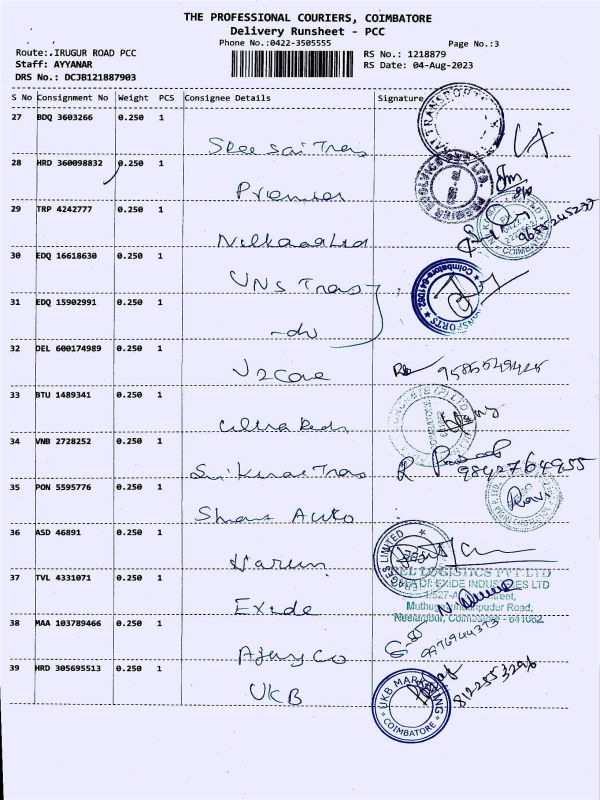 THE PROFESSIONAL COURIERS, COIMBATORE
Delivery Runsheet - PCC
Phone No.:0422-3505555
Page No.:3
Route:.IRUGUR ROAD PCC
RS No.: 1218879
Staff: AYYANAR
RS Date: 04-Aug-2023
DRS No.: DCJB121887903
S No Consignment No Weight PCS Consignee Details Signature
27 BDQ 3603266 0.250 1
Sree sai Trans
28 HRD 360098832 0.250 1
Premier
29 TRP 4242777 0.250 1
Nilkamal Ltd
9655245255
COIMBATORE
30 EDQ 16618630 0.250 1
VNS Trans
Coimbatore-641062
31 EDQ 15902991 0.250 1
-do
32 DEL 600174989 0.250 1
V2Care
33 BTU 1489341 0.250 1
34 VNB 2728252 0.250 1
9842764955
35 PON 5595776 0.250 1
Auto
Ravi
36 ASD 46891 0.250 1
Varun
37 TVL 4331071 0.250 1
LOGISTICS PVT.LTD
EXIDE INDUSTRIES LTD
Street,
Road,
Neelambur, Coimbatore - 641062.
Exide
38 MAA 103789466 0.250 1
9976944373
Ajay Co
39 HRD 305695513 0.250 1
UKB
UKB MARKETING
COIMBATORE
8122553296